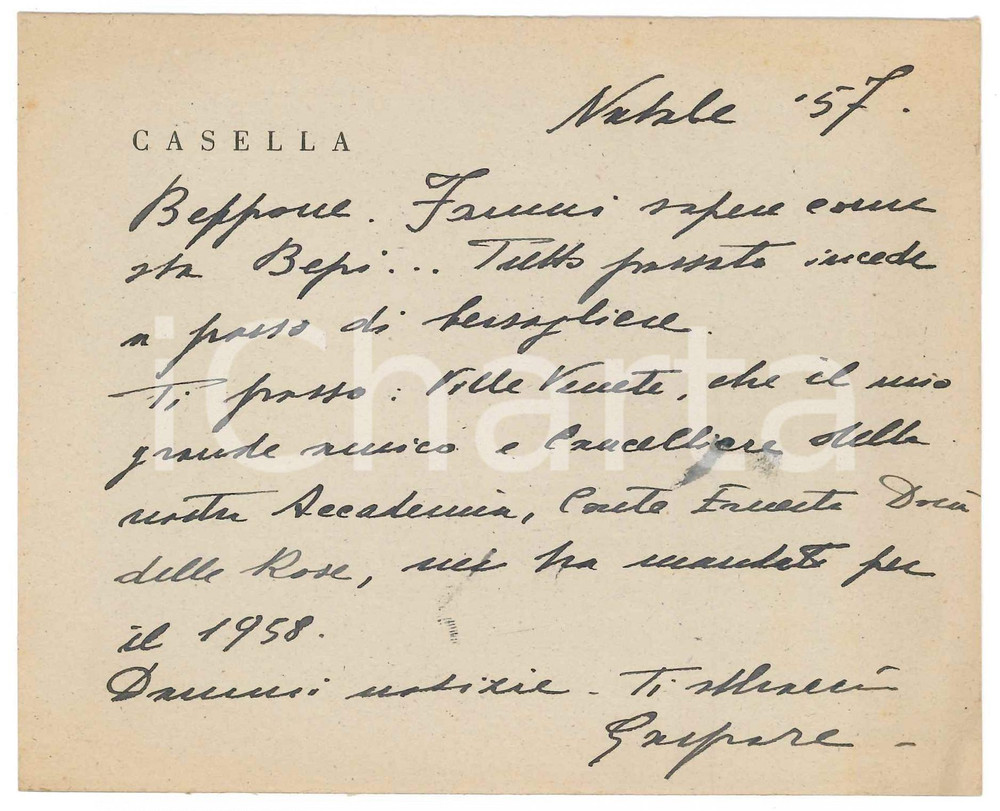 Natale '57.
CASELLA
Beppone. Fammi sapere come
sta Bepi... Tutto passato incede
a passo di bersagliere.
Ti passo: Ville Venete, che il mio
grande amico e Cancelliere della
nostra Accademia, Conte Ernesto Donà
delle Rose, mi ha mandato per
il 1958.
Dammi notizie - Ti abbraccia
Gaspare -
iCharta